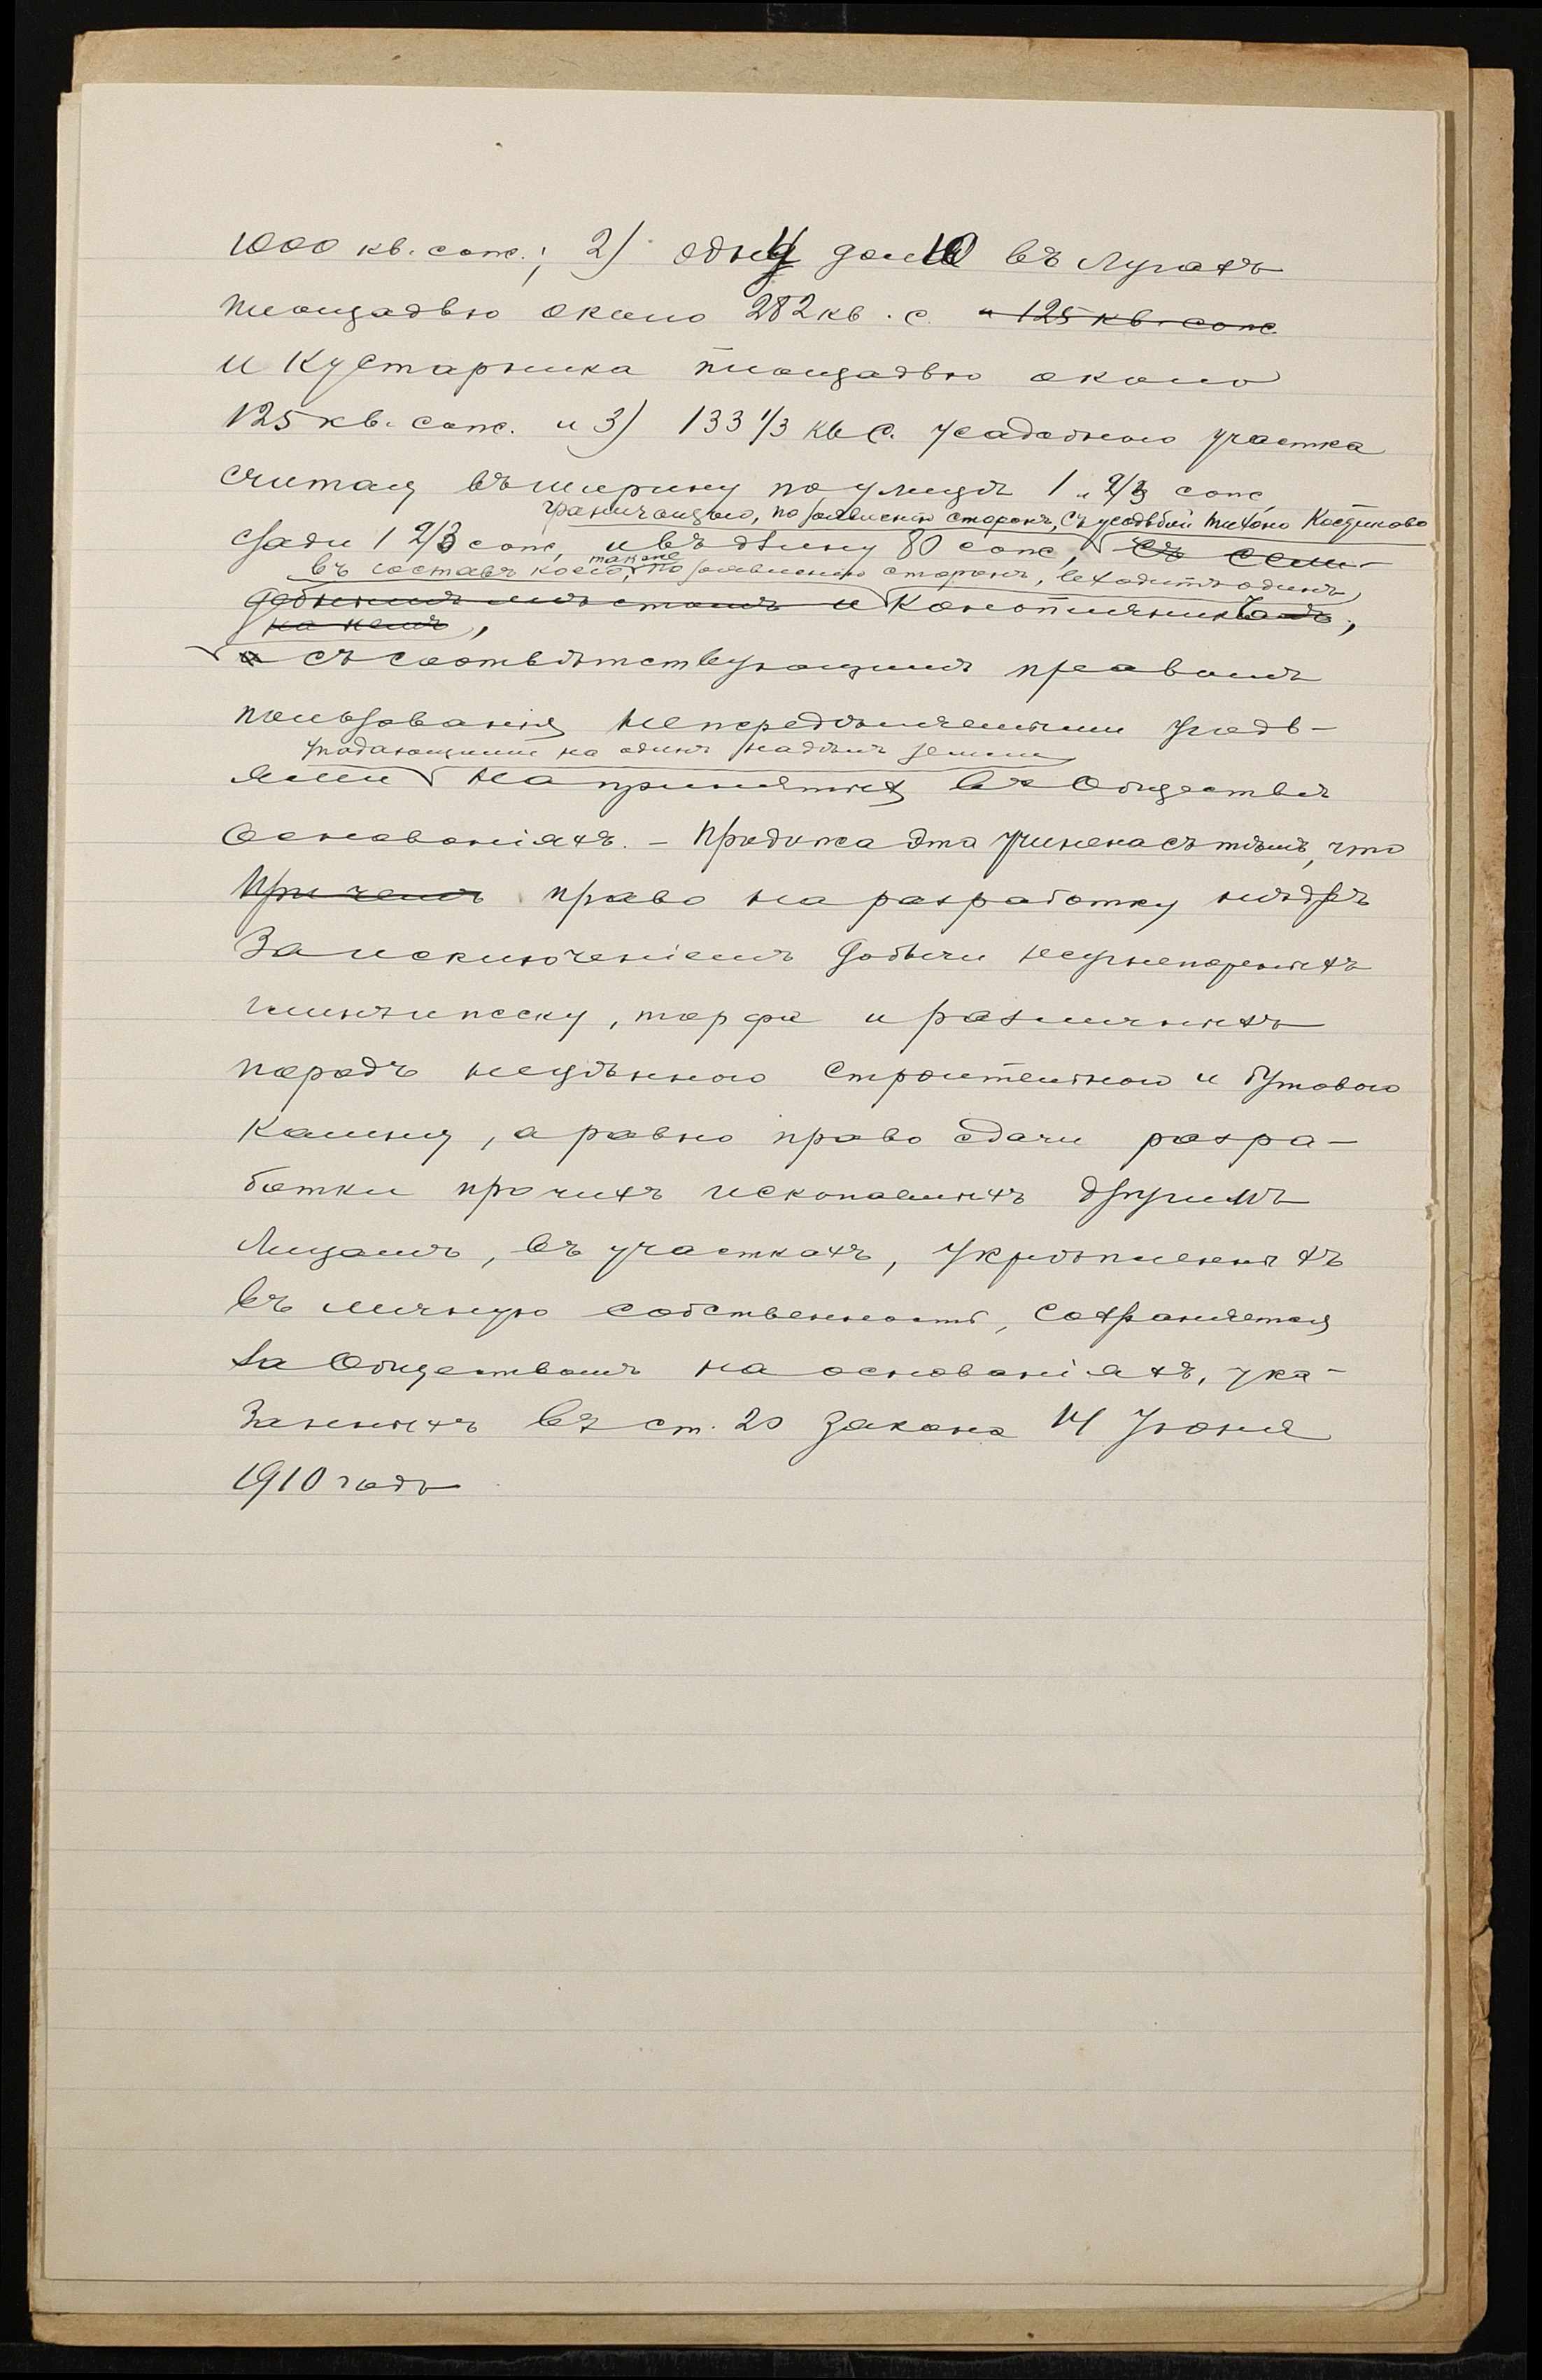 1000 кв. саж.; 2) одну долю въ лугахъ
площадью около 282 кв. с. и 125 кв. саж
и кустарника площадью около
125 кв. саж. и 3) 133 1/3 кв с. усадебнаго участка
считая въ ширину по улицѣ 1 2/3 саж,
граничащаго, по заявленію сторонъ, съ усадьбой Тихона
сзади 1 2/3 саж, и въ длину 80 саж, съ
въ составъ коего, также по заявленію сторонъ, входитъ одинъ
мѣстомъ и конопляникъ,
съ соотвѣтствующимъ правомъ
пользованія непередѣляемыми угодь-
упадающими на одинъ надѣлъ земли
ями на принятыхъ въ Обществѣ
основаніяхъ. – Продажа эта учинена съ тѣмъ, что
При чемъ право на разработку нѣдръ
За исключеніемъ добычи
глины и песку, торфа и различныхъ
породъ нецѣннаго строительнаго и бутоваго
камня, а равно право сдачи разра-
ботки прочихъ ископаемыхъ другимъ
лицамъ, въ участкахъ, укрѣпленныхъ
въ личную собственность, сохраняется
за Обществомъ на основаніяхъ, ука-
занныхъ въ ст. 20 закона 14 Іюня
1910 года